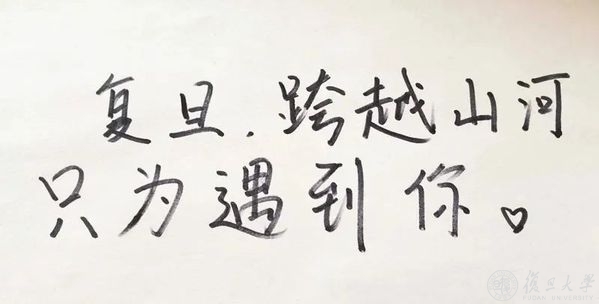 复旦，跨越山河
只为遇到你。♡
復旦大學
FUDAN UNIVERSITY